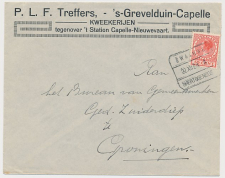 P. L. F. Treffers, - 's-Grevelduin-Capelle
KWEEKERIJEN
tegenover 't Station Capelle-Nieuwevaart.
Aan
het Bureau van Gemeentewerken
Ged. Zuiderdiep
Groningen